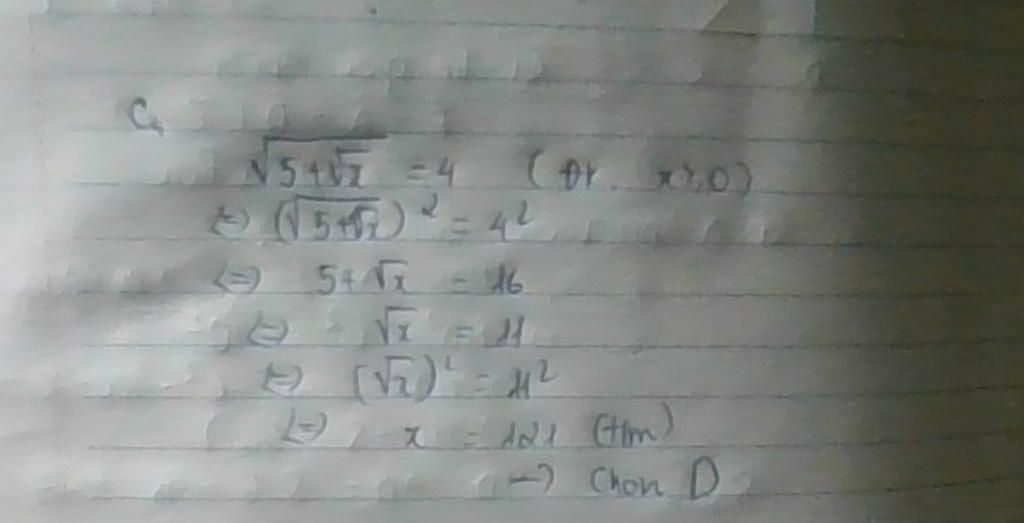 C,
√(5+√x) = 4 (ĐK. x≥0)
(=) (√(5+√x))² = 4²
(=) 5+√x = 16
(=) √x = 11
(=) (√x)² = 11²
(=) x = 121 (t/m)
→ Chọn D